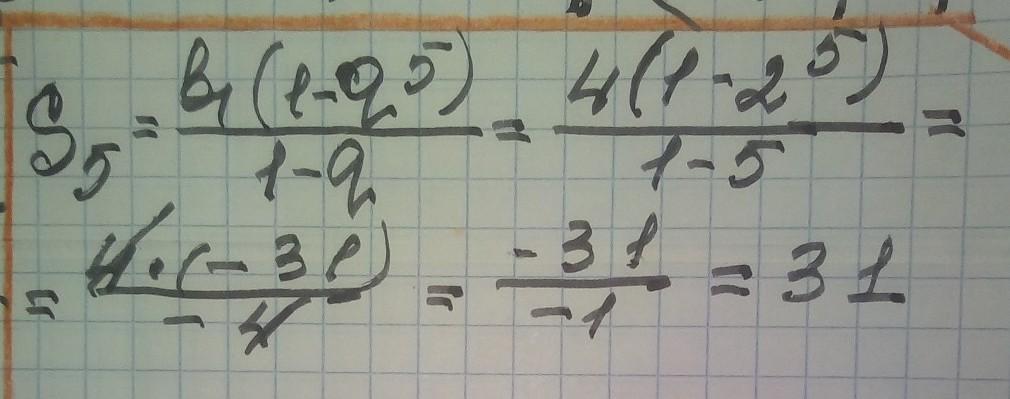 S₅ = b₁(1-q⁵)/(1-q) = 4(1-2⁵)/(1-5) =
= 4·(-31)/(-4) = -31/-1 = 31